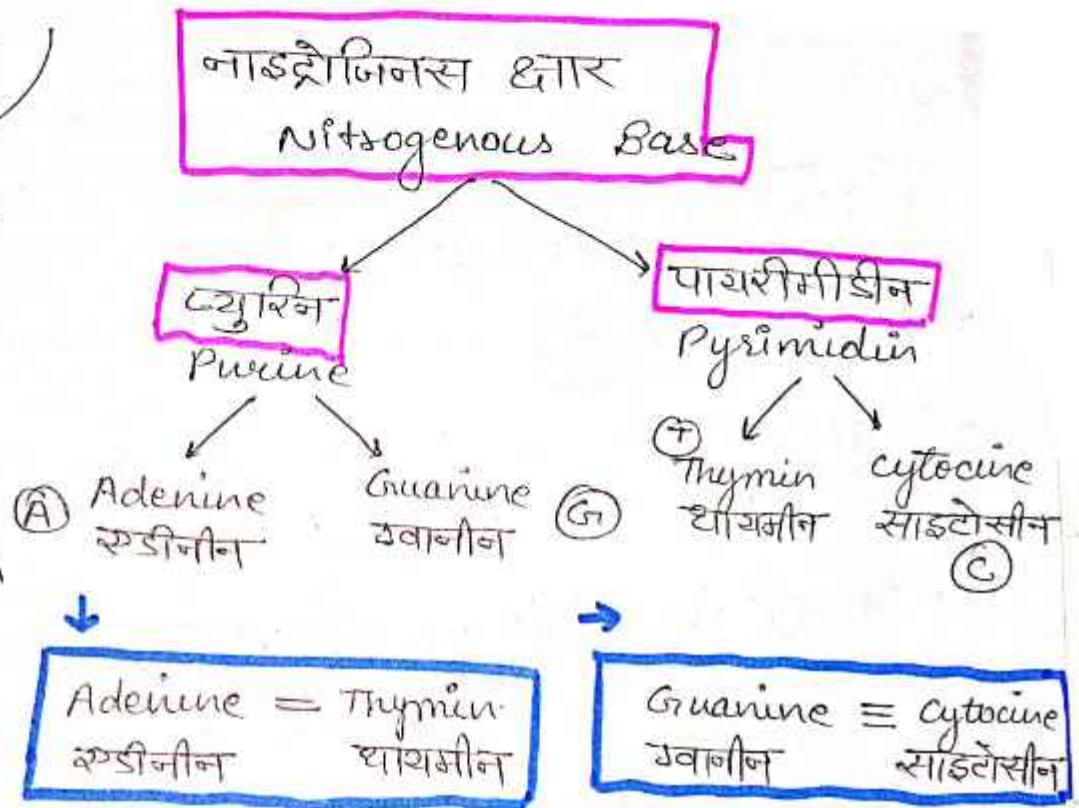 नाइट्रोजिनस क्षार
Nitrogenous Base
प्युरिन
Purine
पायरीमीडीन
Pyrimidin
A
Adenine
एडीनीन
Guanine
ग्वानीन
G
T
Thymin
थायमीन
Cytocine
साइटोसीन
C
Adenine = Thymin
एडीनीन थायमीन
Guanine ≡ Cytocine
ग्वानीन साइटोसीन